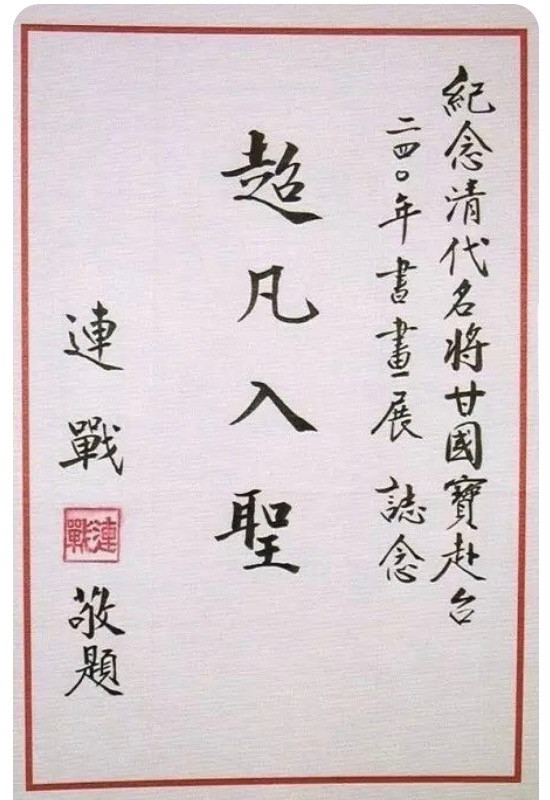 紀念清代名將甘國寶赴台
二四〇年書畫展 誌念
超凡入聖
連戰
連戰
敬題